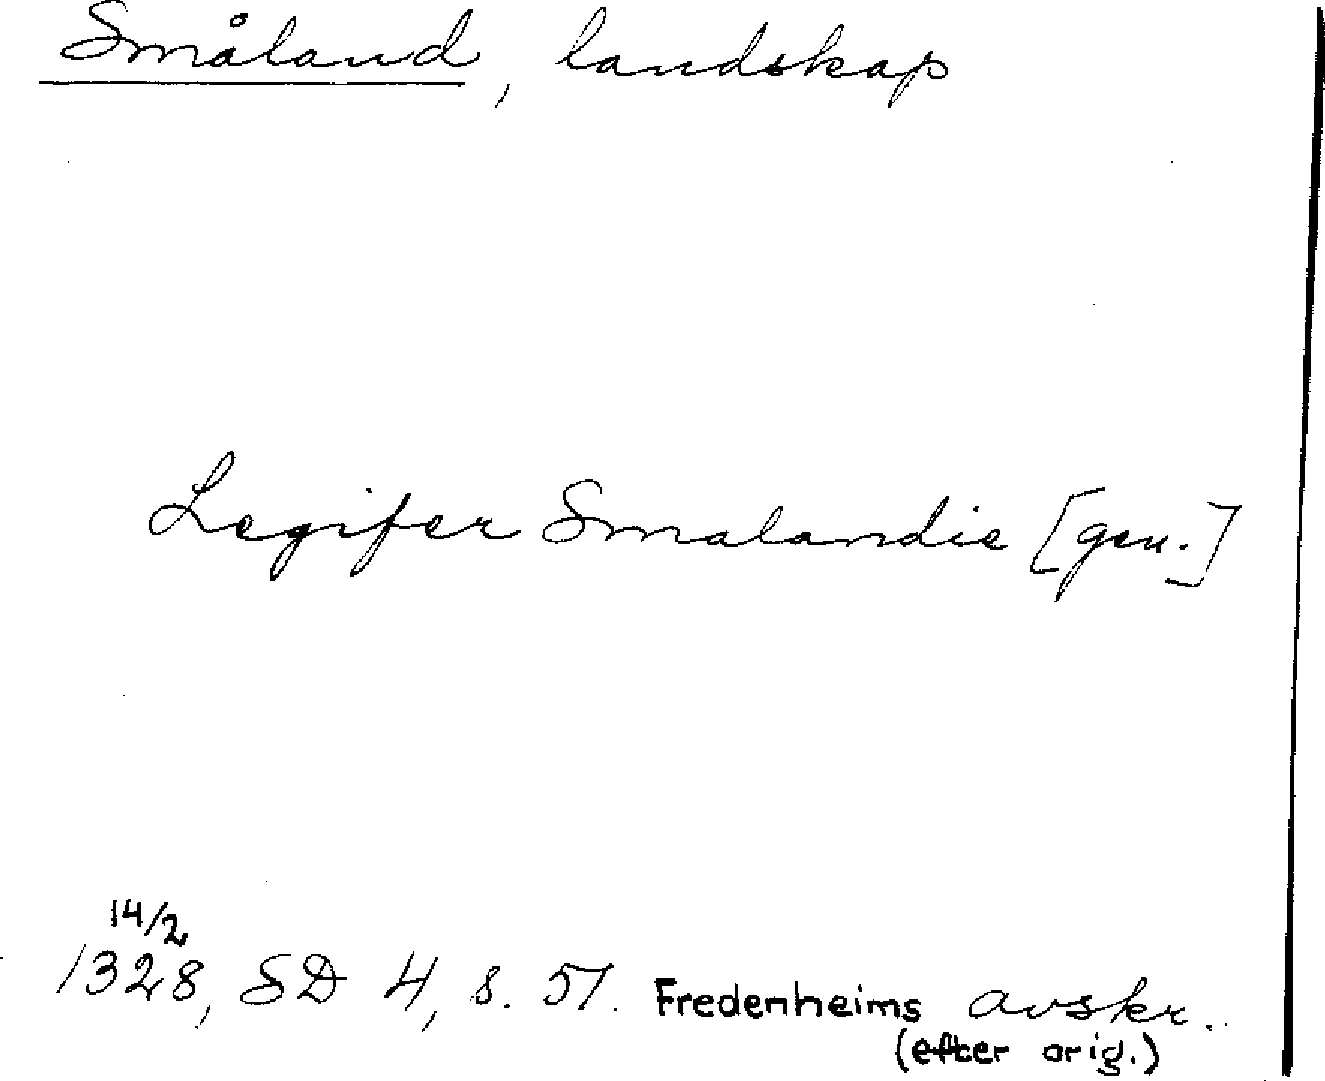 Småland, landskap
Legifer Smalandie [gen.]
14/2
1328, SD 4, s. 51. Fredenheims avskr..
(efter orig.)